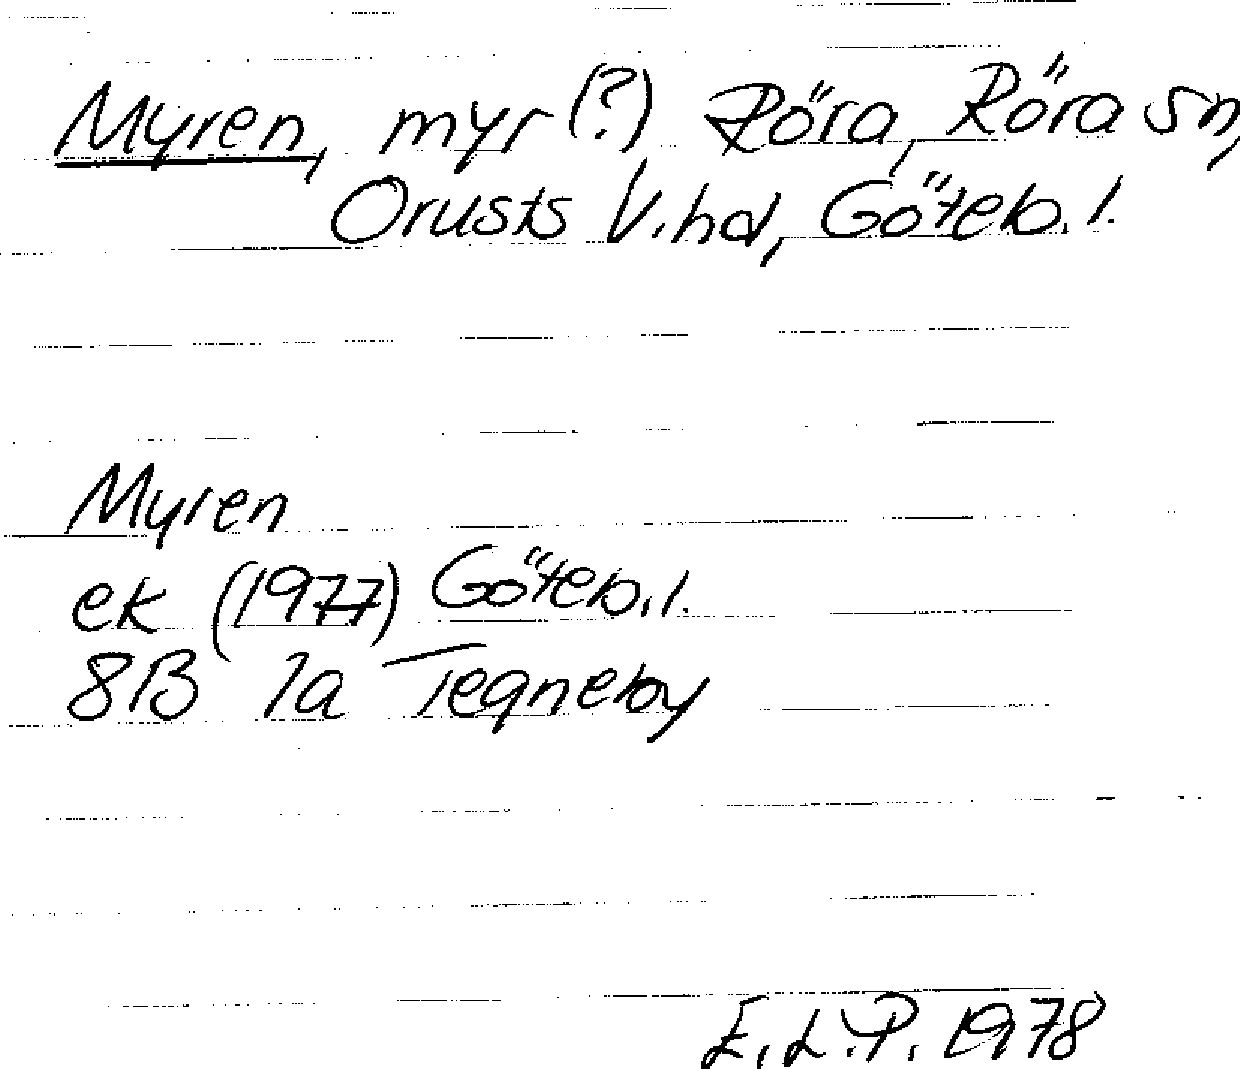 Myren, myr (?) Röra, Röra sn,
Orusts V. hd, Göteb. l.
Myren
ek (1977) Göteb. l.
8B 1a Tegneby
E. L. P. 1978